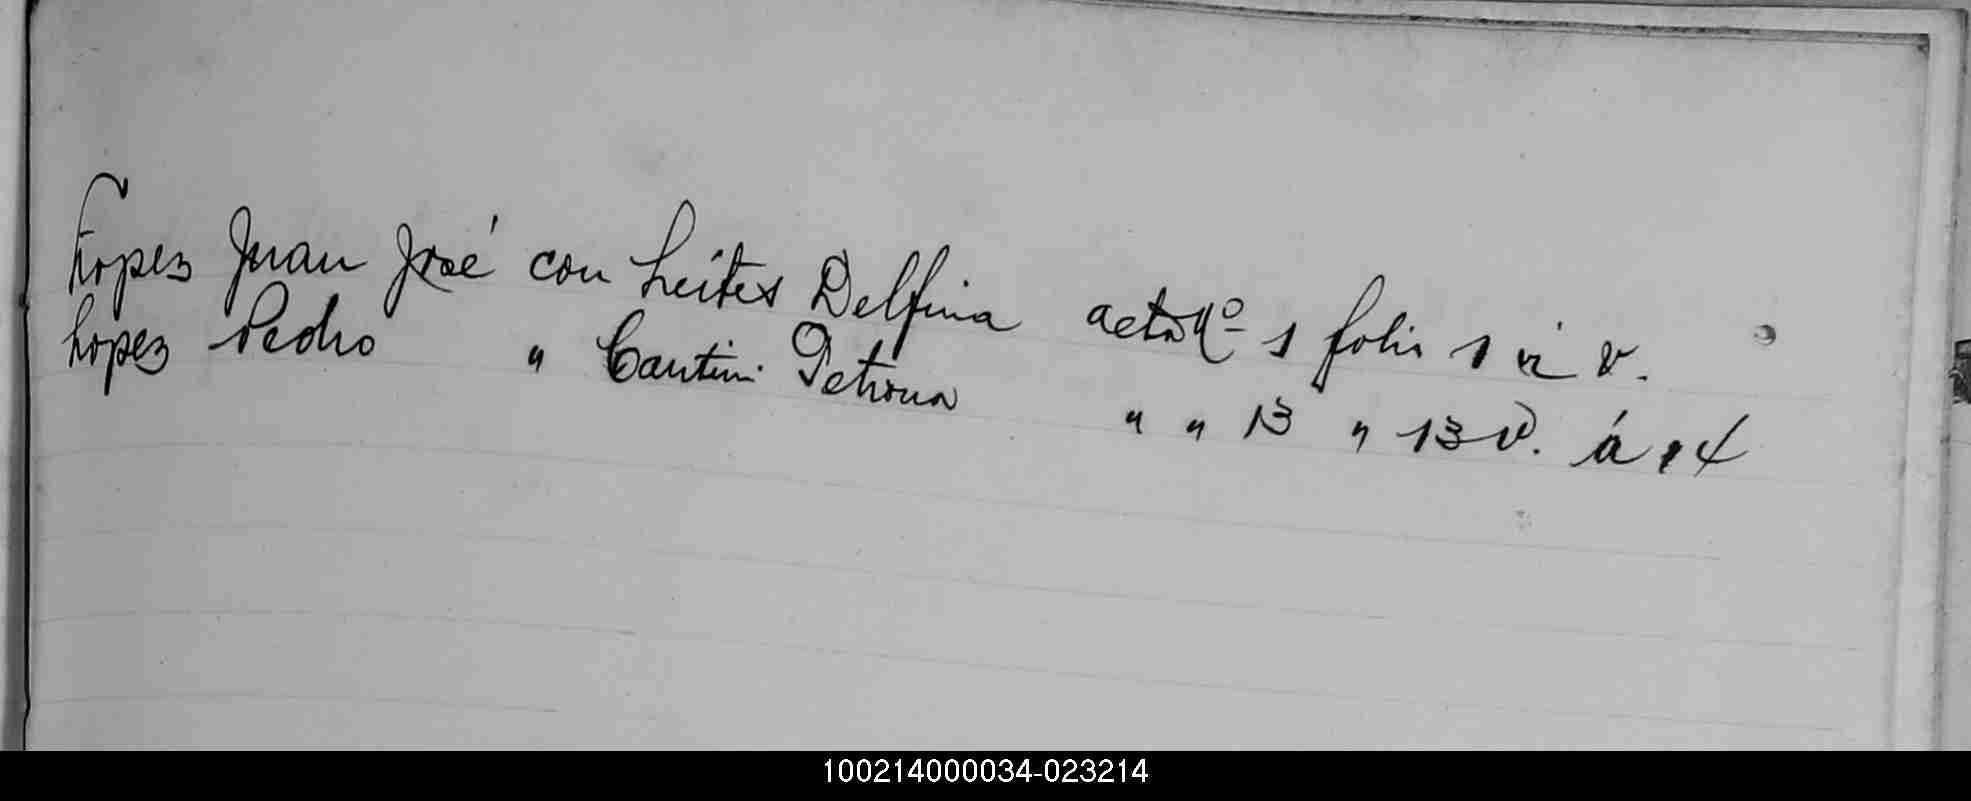 Lopez Juan José con Leites Delfina acta Nº 1 folio 1 á v.
Lopez Pedro " Cantini Petrona " " 13 " 13 v. á 14
100214000034-023214